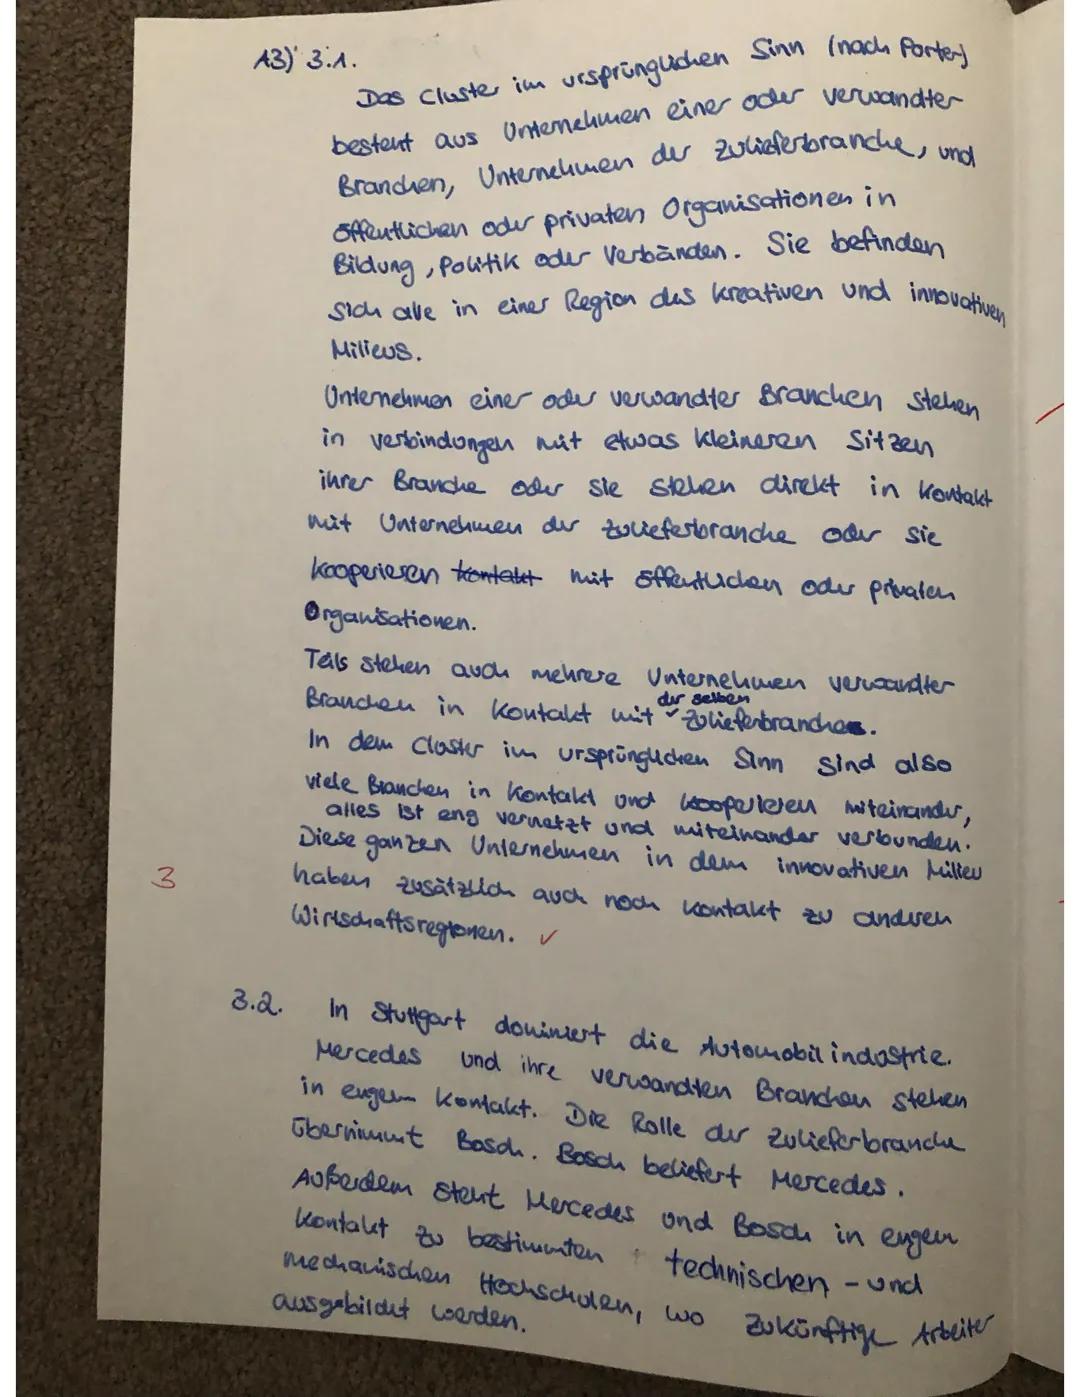 A3) 3.1.
Das Cluster im ursprünglichen Sinn (nach Porter)
besteht aus Unternehmen einer oder verwandter
Branchen, Unternehmen der Zulieferbranche, und
öffentlichen oder privaten Organisationen in
Bildung, Politik oder Verbänden. Sie befinden
sich alle in einer Region des kreativen und innovativen
Milieus.
Unternehmen einer oder verwandter Branchen stehen
in verbindungen mit etwas kleineren Sitzen
ihrer Branche oder sie stehen direkt in Kontakt
mit Unternehmen der Zulieferbranche oder sie
kooperieren kontakt mit öffentlichen oder privaten
Organisationen.
Teils stehen auch mehrere Unternehmen verwandter
der selben
Branchen in Kontakt mit Zulieferbranche.
In dem Cluster im ursprünglichen Sinn sind also
viele Branchen in Kontakt und kooperieren miteinander,
alles ist eng vernetzt und miteinander verbunden.
Diese ganzen Unternehmen in dem innovativen Milieu
3
haben zusätzlich auch noch Kontakt zu anderen
Wirtschaftsregionen. ✓
3.2. In Stuttgart dominiert die Automobilindustrie.
Mercedes und ihre verwandten Branchen stehen
in engem Kontakt. Die Rolle der Zulieferbranche
übernimmt Bosch. Bosch beliefert Mercedes.
Außerdem steht Mercedes und Bosch in engem
Kontakt zu bestimmten technischen - und
mechanischen Hochschulen, wo zukünftige Arbeiter
ausgebildet werden.